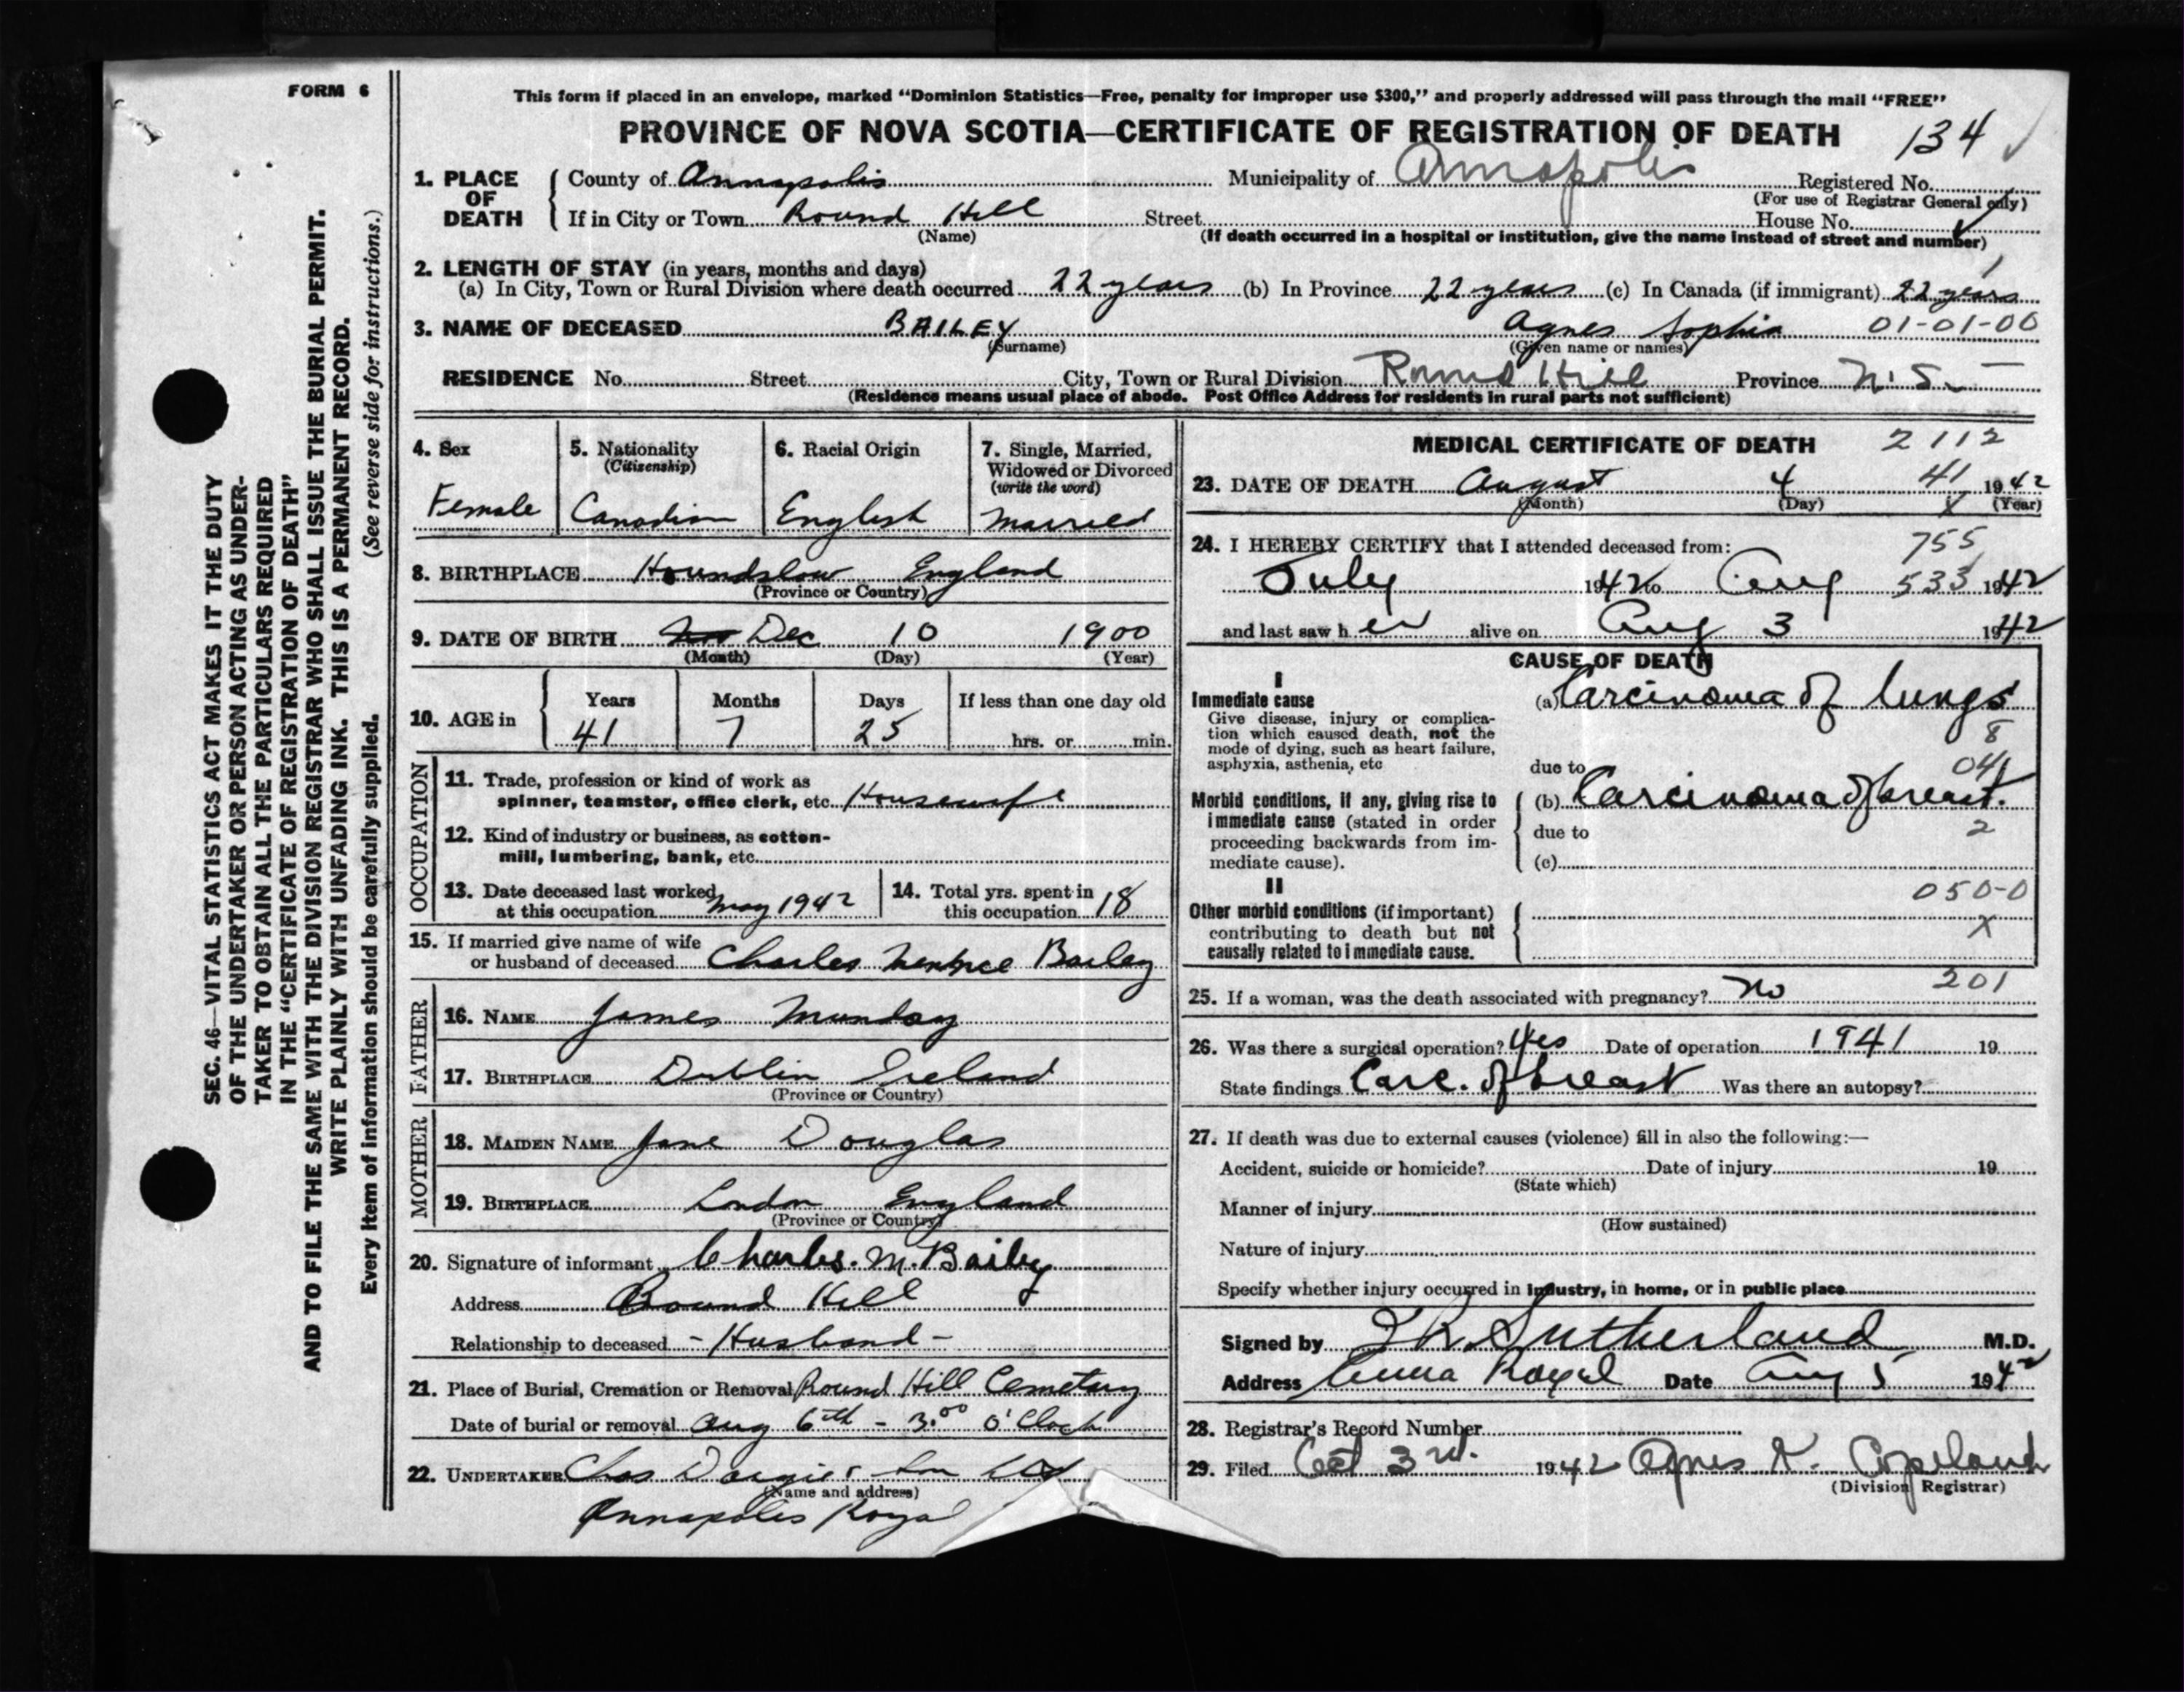 FORM 6
This form if placed in an envelope, marked "Dominion Statistics—Free, penalty for improper use $300," and properly addressed will pass through the mail "FREE"
PROVINCE OF NOVA SCOTIA—CERTIFICATE OF REGISTRATION OF DEATH 134
SEC. 46—VITAL STATISTICS ACT MAKES IT THE DUTY
OF THE UNDERTAKER OR PERSON ACTING AS UNDER-
TAKER TO OBTAIN ALL THE PARTICULARS REQUIRED
IN THE "CERTIFICATE OF REGISTRATION OF DEATH"
AND TO FILE THE SAME WITH THE DIVISION REGISTRAR WHO SHALL ISSUE THE BURIAL PERMIT.
WRITE PLAINLY WITH UNFADING INK. THIS IS A PERMANENT RECORD.
Every item of information should be carefully supplied. (See reverse side for instructions.)
1. PLACE OF DEATH County of Annapolis Municipality of Annapolis Registered No.
(For use of Registrar General only)
If in City or Town Round Hill Street House No.
(Name) (If death occurred in a hospital or institution, give the name instead of street and number)
2. LENGTH OF STAY (in years, months and days)
(a) In City, Town or Rural Division where death occurred 22 years (b) In Province 22 years (c) In Canada (if immigrant) 22 years
3. NAME OF DECEASED BAILEY Agnes Sophia 01-01-00
(Surname) (Given name or names)
RESIDENCE No. Street City, Town or Rural Division Round Hill Province N.S.
(Residence means usual place of abode. Post Office Address for residents in rural parts not sufficient)
4. Sex 5. Nationality (Citizenship) 6. Racial Origin 7. Single, Married, Widowed or Divorced (write the word)
Female Canadian English Married
8. BIRTHPLACE Houndslow England
(Province or Country)
9. DATE OF BIRTH Dec 10 1900
(Month) (Day) (Year)
10. AGE in Years Months Days If less than one day old
41 7 25 hrs. or min.
OCCUPATION
11. Trade, profession or kind of work as
spinner, teamster, office clerk, etc. Housewife
12. Kind of industry or business, as cotton-
mill, lumbering, bank, etc.
13. Date deceased last worked at this occupation May 1942 14. Total yrs. spent in this occupation 18
15. If married give name of wife
or husband of deceased Charles Bailey
FATHER
16. NAME James Munday
17. BIRTHPLACE Dublin Ireland
(Province or Country)
MOTHER
18. MAIDEN NAME Jane Douglas
19. BIRTHPLACE London England
(Province or Country)
20. Signature of informant Charles. M. Bailey
Address Round Hill
Relationship to deceased - Husband -
21. Place of Burial, Cremation or Removal Round Hill Cemetary
Date of burial or removal Aug 6th - 3.00 O'Clock
22. UNDERTAKER Chas Son Ltd
(Name and address)
Annapolis Royal
MEDICAL CERTIFICATE OF DEATH 2112
23. DATE OF DEATH August 4 41 1942
(Month) (Day) X (Year)
24. I HEREBY CERTIFY that I attended deceased from: 755
July 1942 to Aug 533 1942
and last saw her alive on Aug 3 1942
CAUSE OF DEATH
I
Immediate cause (a) Carcinoma of lungs
Give disease, injury or complica-
tion which caused death, not the
mode of dying, such as heart failure,
asphyxia, asthenia, etc
8
due to 041
Morbid conditions, if any, giving rise to
immediate cause (stated in order
proceeding backwards from im-
mediate cause).
(b) Carcinoma of breast.
due to 2
(c)
II
050-0
Other morbid conditions (if important)
contributing to death but not
causally related to immediate cause.
X
25. If a woman, was the death associated with pregnancy? No 201
26. Was there a surgical operation? Yes Date of operation 1941 19
State findings Carc. of breast Was there an autopsy?
27. If death was due to external causes (violence) fill in also the following:—
Accident, suicide or homicide? Date of injury 19
(State which)
Manner of injury
(How sustained)
Nature of injury
Specify whether injury occurred in industry, in home, or in public place
Signed by Sutherland M.D.
Address Anna Royal Date Aug 5 1942
28. Registrar's Record Number
29. Filed Oct 3rd. 1942 Agnes K. Copeland
(Division Registrar)